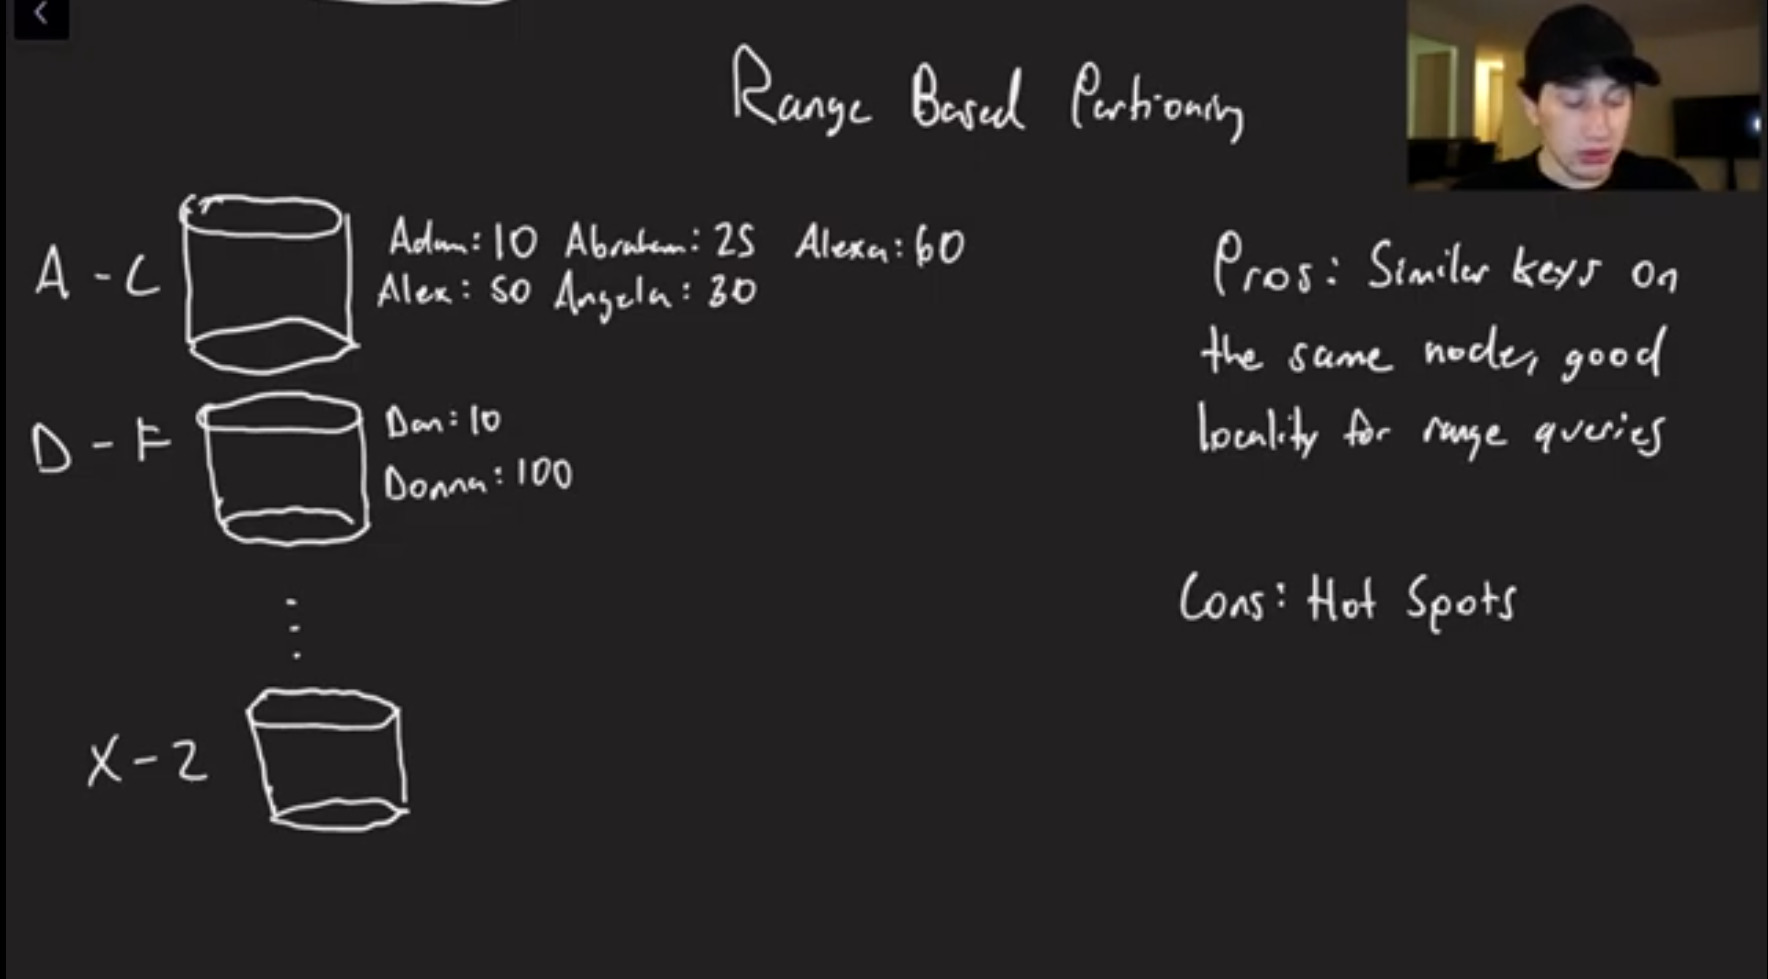 Range Based Partioning
A - C
Adam: 10 Abraham: 25 Alexa: 60
Alex: 50 Angela: 30
D - F
Dan: 10
Donna: 100
X - Z
Pros: Similar keys on
the same node, good
locality for range queries
Cons: Hot Spots